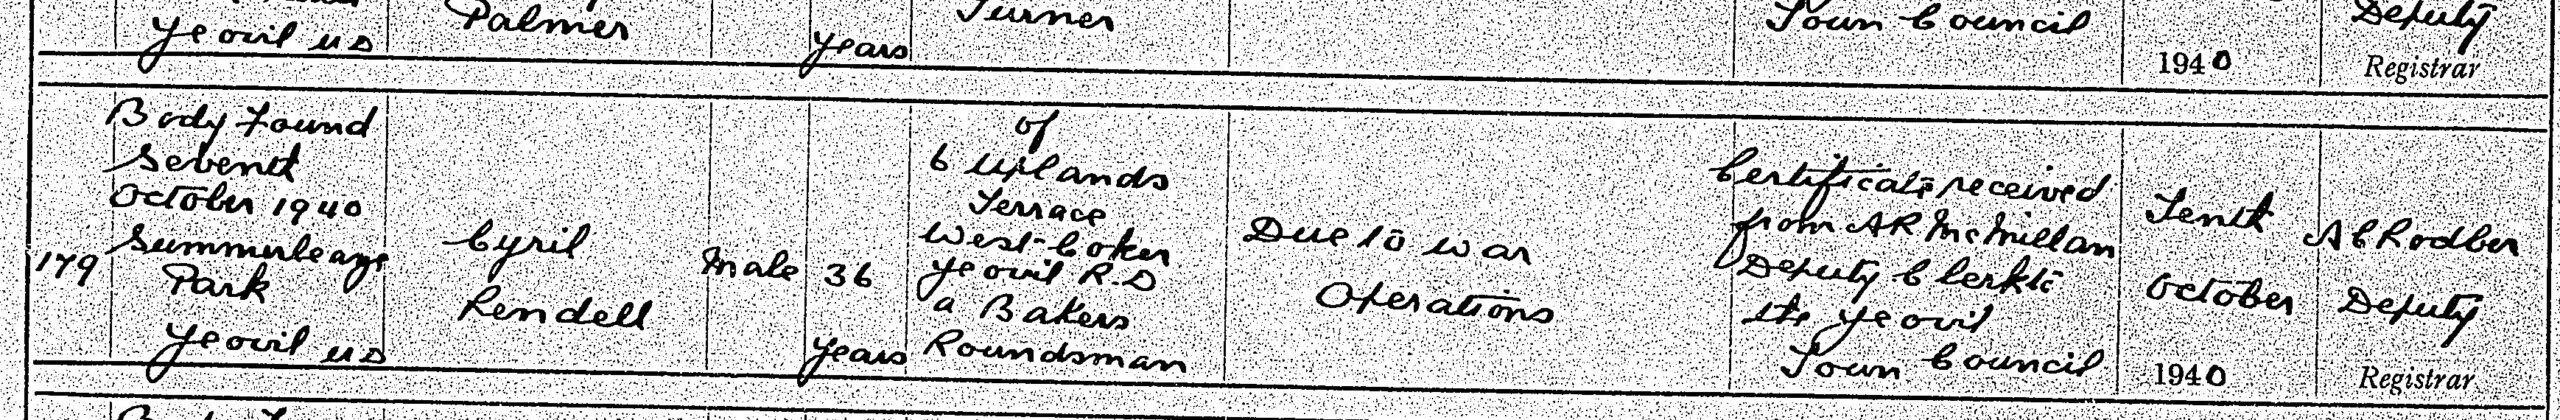 Yeovil UD
Palmer
years
Turner
Town Council
1940
Deputy
Registrar
179
Body Found
Seventh
October 1940
Summerleaze
Park
Yeovil UD
Cyril
Rendell
Male
36
years
of
6 Uplands
Terrace
West Coker
Yeovil R.D
a Bakers
Roundsman
Due to war
Operations
Certificate received
from AR McMillan
Deputy Clerk to
the Yeovil
Town Council
Tenth
October
1940
A C Rodber
Deputy
Registrar